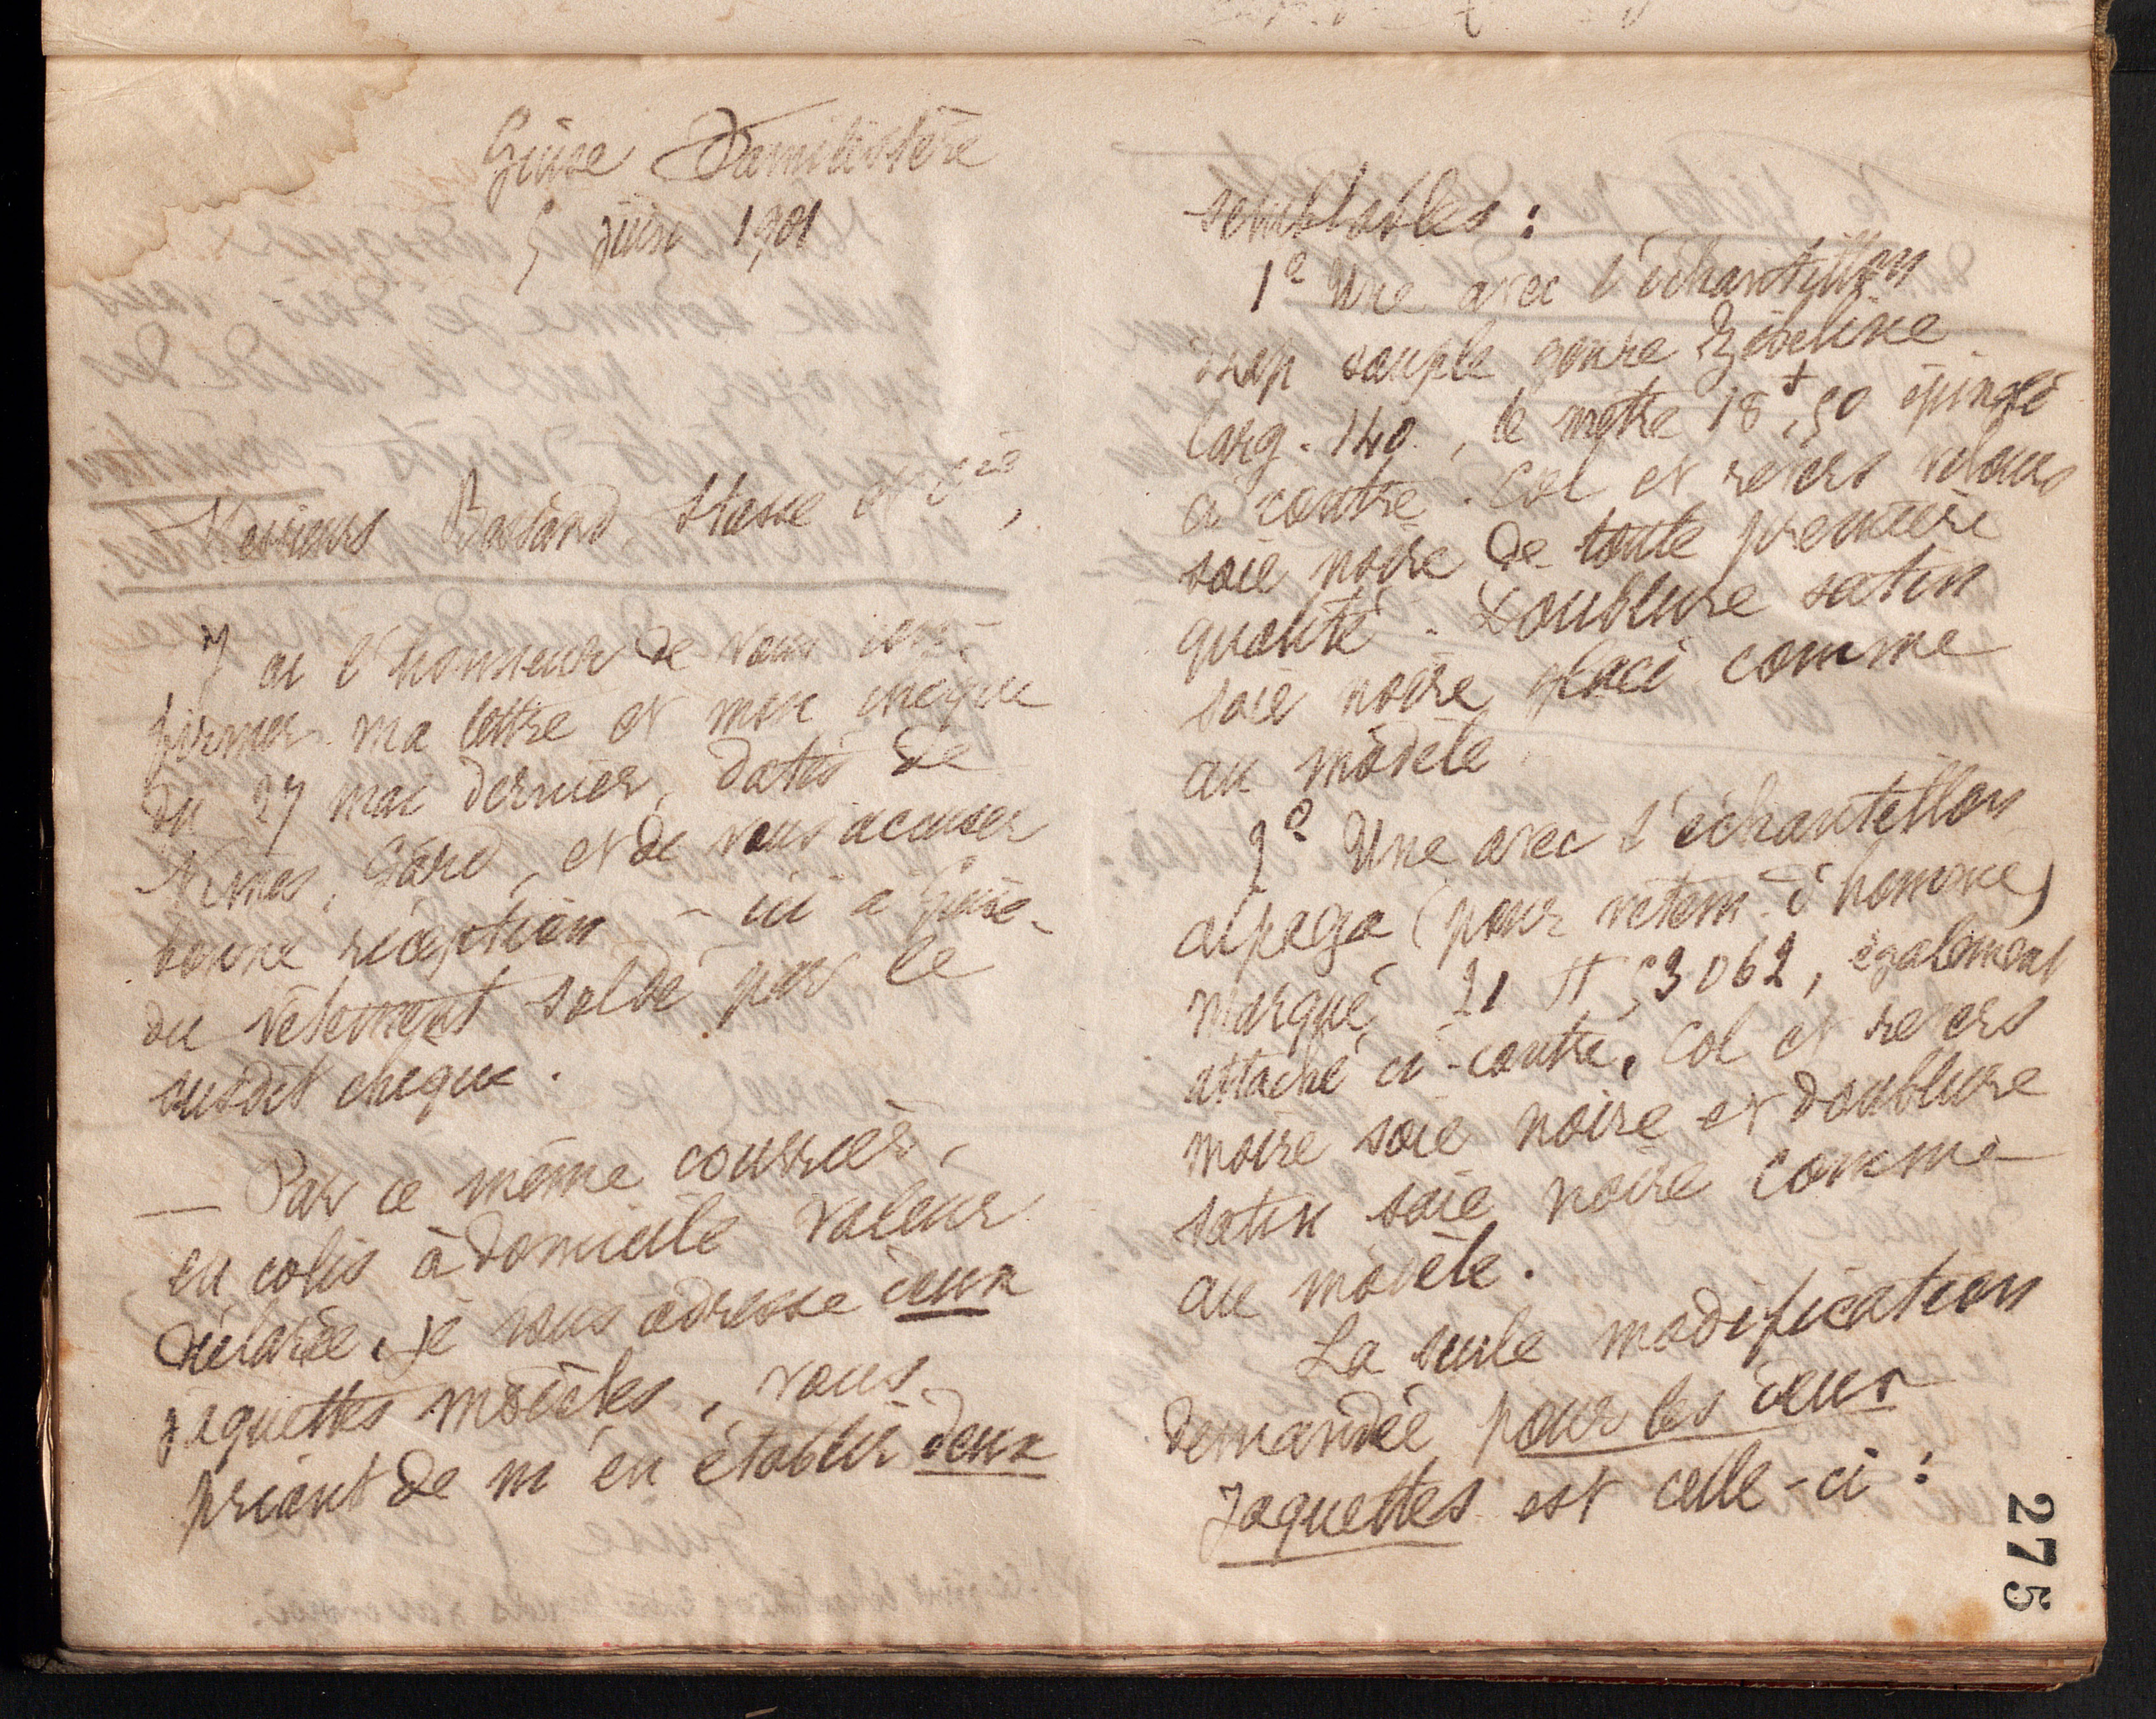 Guise Familistère
5 juin 1901
Messieurs et Cie,
J'ai l'honneur de vous con-
firmer ma lettre et mon chèque
du 27 mai dernier, datés de
Nîmes, Gard, et de vous accuser
bonne réception - ici à Guise -
du vêtement soldé par le
susdit chèque.
— Par ce même courrier,
en colis à domicile valeur
déclarée, je vous adresse deux
jaquettes modèles, vous
priant de m'en établir deux
semblables :
1º Une avec l'échantillon
drap souple genre Zibeline
larg. 140, le mètre 18f,50 épinglé
ci contre. Col et revers velours
soie noire de toute première
qualité. Doublure satin
soie noire glacé comme
au modèle.
2º Une avec l'échantillon
alpaga (pour vêtem. d'homme)
marqué 21 53062, également
attaché ci-contre. Col et revers
moire soie noire et doublure
satin soie noire comme
au modèle.
La seule modification
demandée pour les deux
Jaquettes est celle-ci :
275